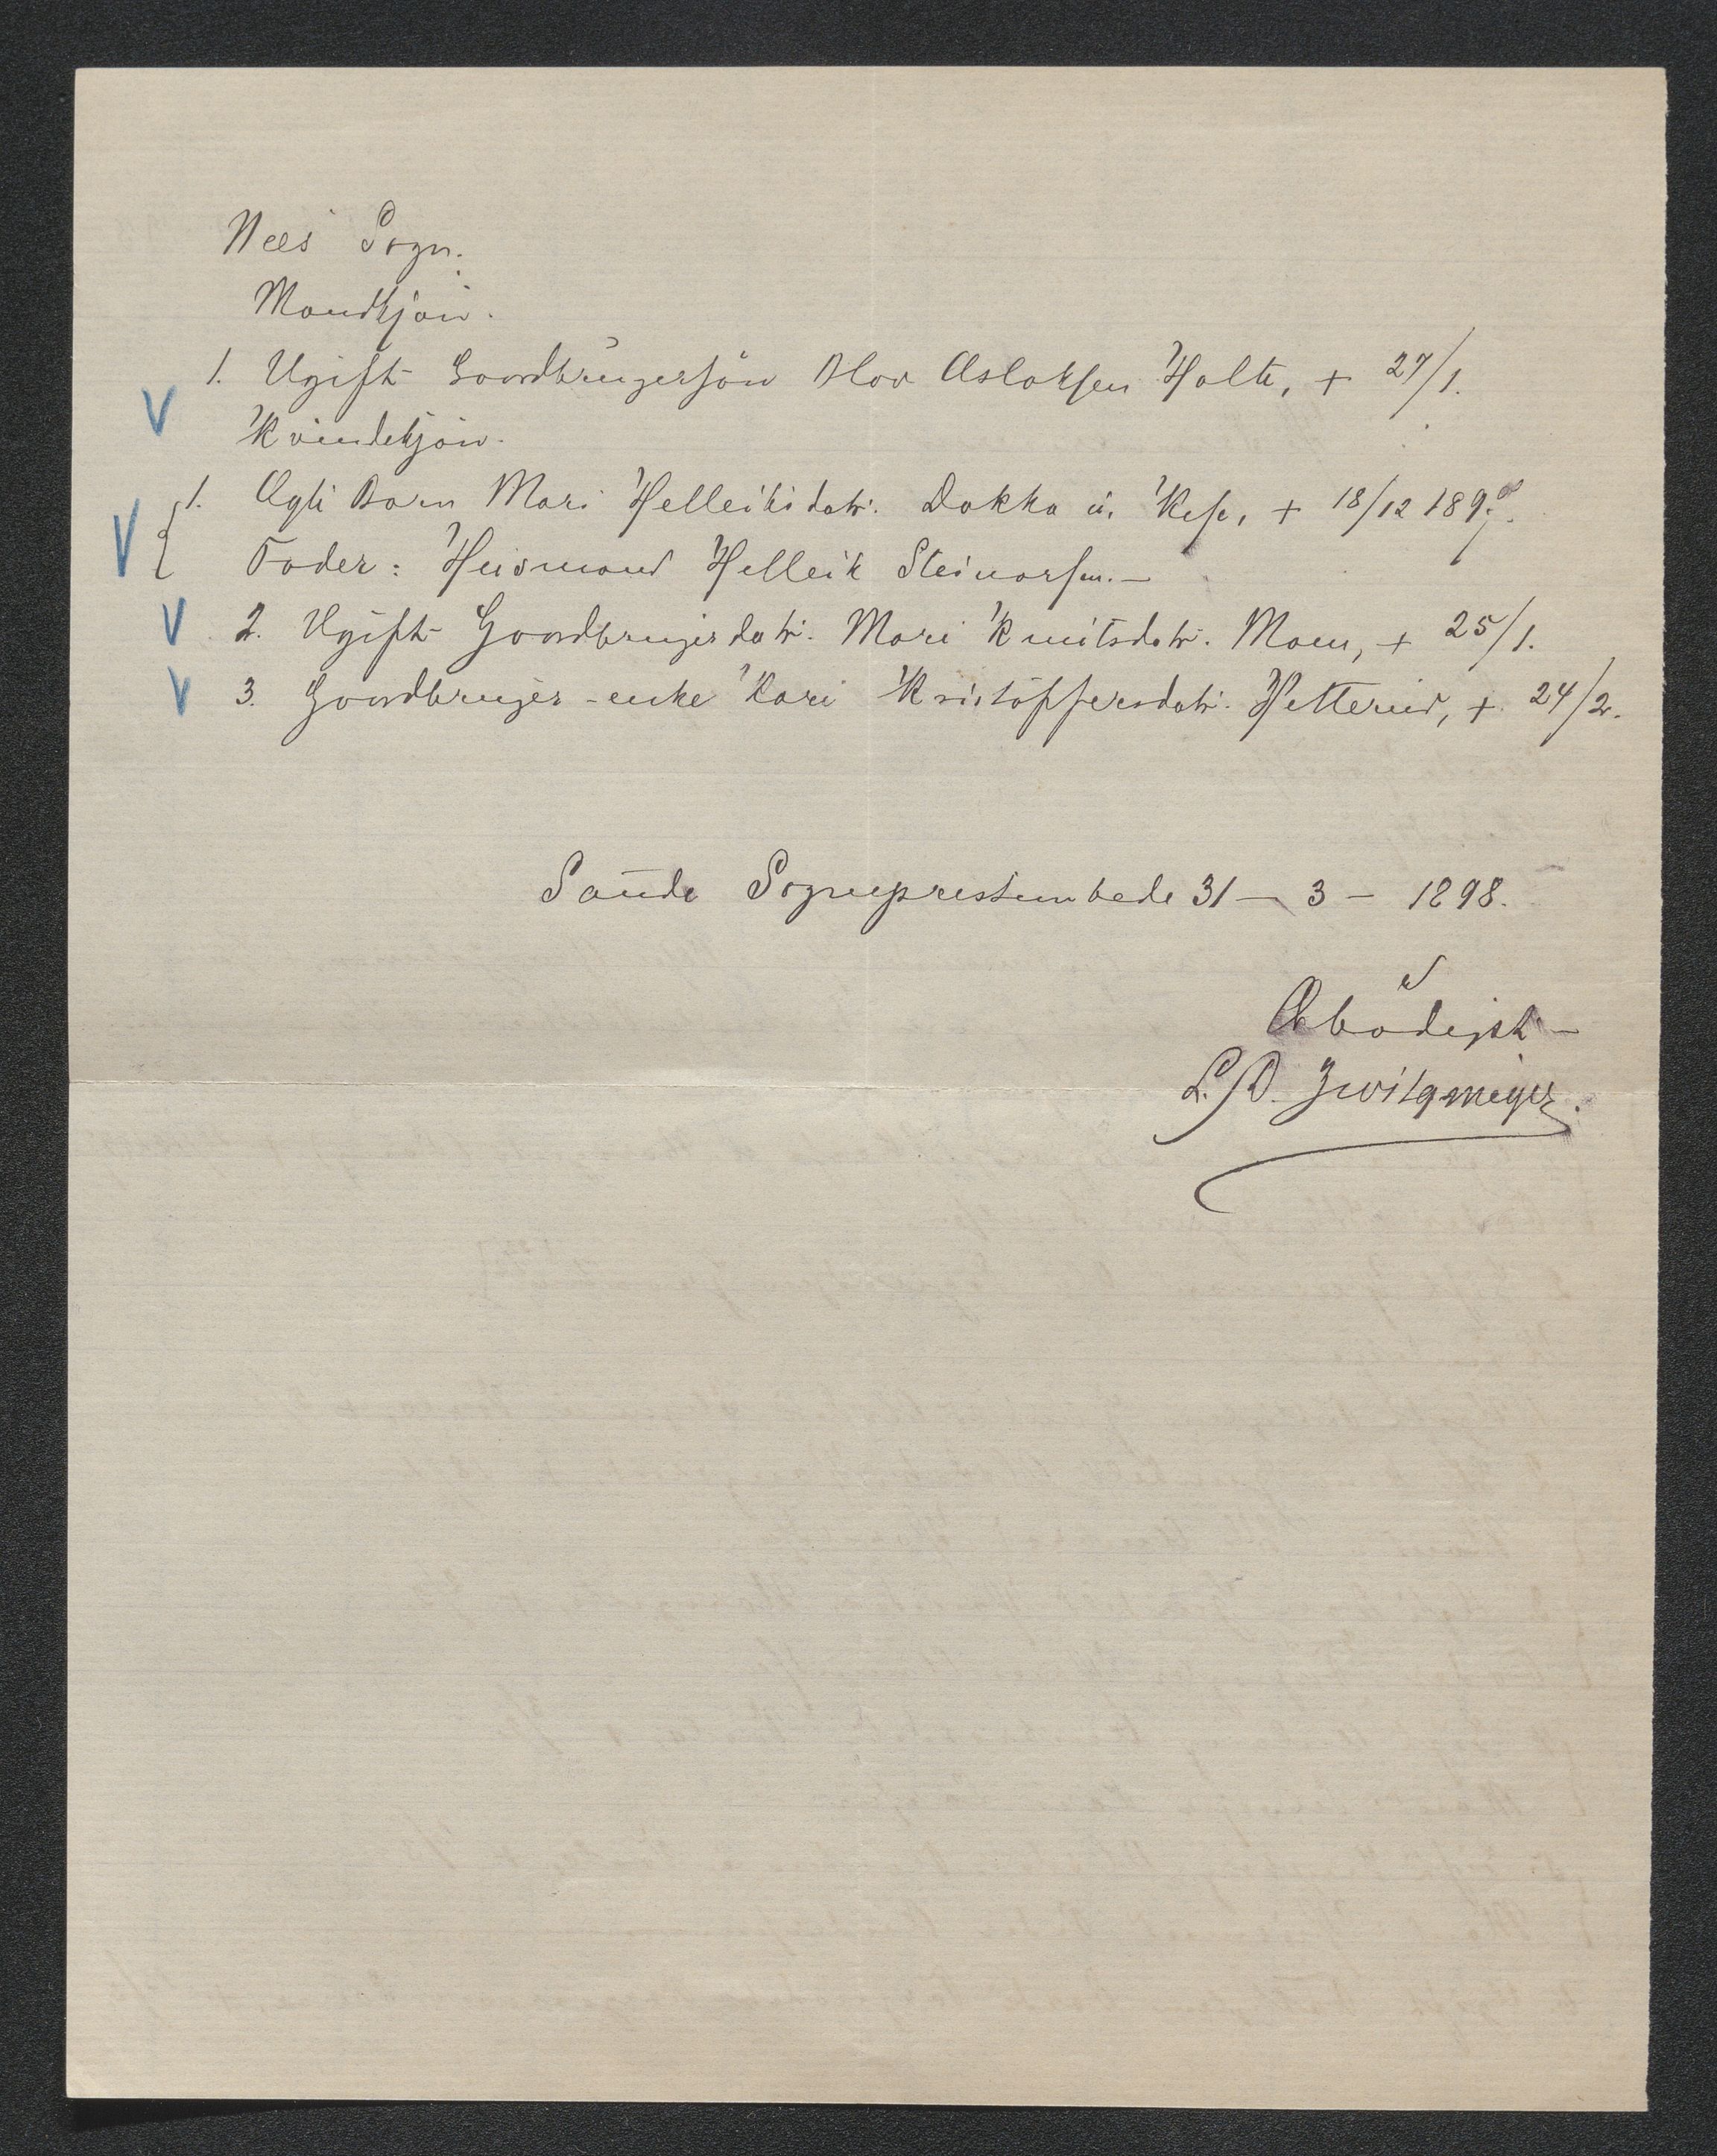 Nees Sogn.
Mandkjøn.
1. Ugift Gaardbrugersøn Olav Aslaksen Holte, + 27/1.
Kvindekjøn.
1. Ægte Barn Mari Helleiksdatr. Dokka u. Kese, + 18/12 1897.
Fader: Husmand Helleik Steinarsen. —
2. Ugift Gaardbrugerdatr. Mari Knutsdatr. Moen, + 25/1.
3. Gaardbruger-enke Kari Kristoffersdatr. Hetterud, + 24/2.
Saude Sogneprestembede 31 — 3 — 1898.
Ærbødigst
L. D. Zwilgmeyer.